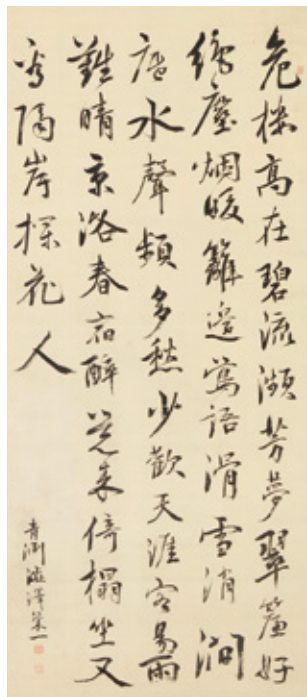 危楼高在碧流瀕芳夢翠簾好
絶塵烟暖籬邊鶯語滑雪消澗
底水聲頻多愁少歡天涯客易雨
難晴京洛春宿醉覺来倚榻坐又
看隔岸探花人
青淵澁澤榮一